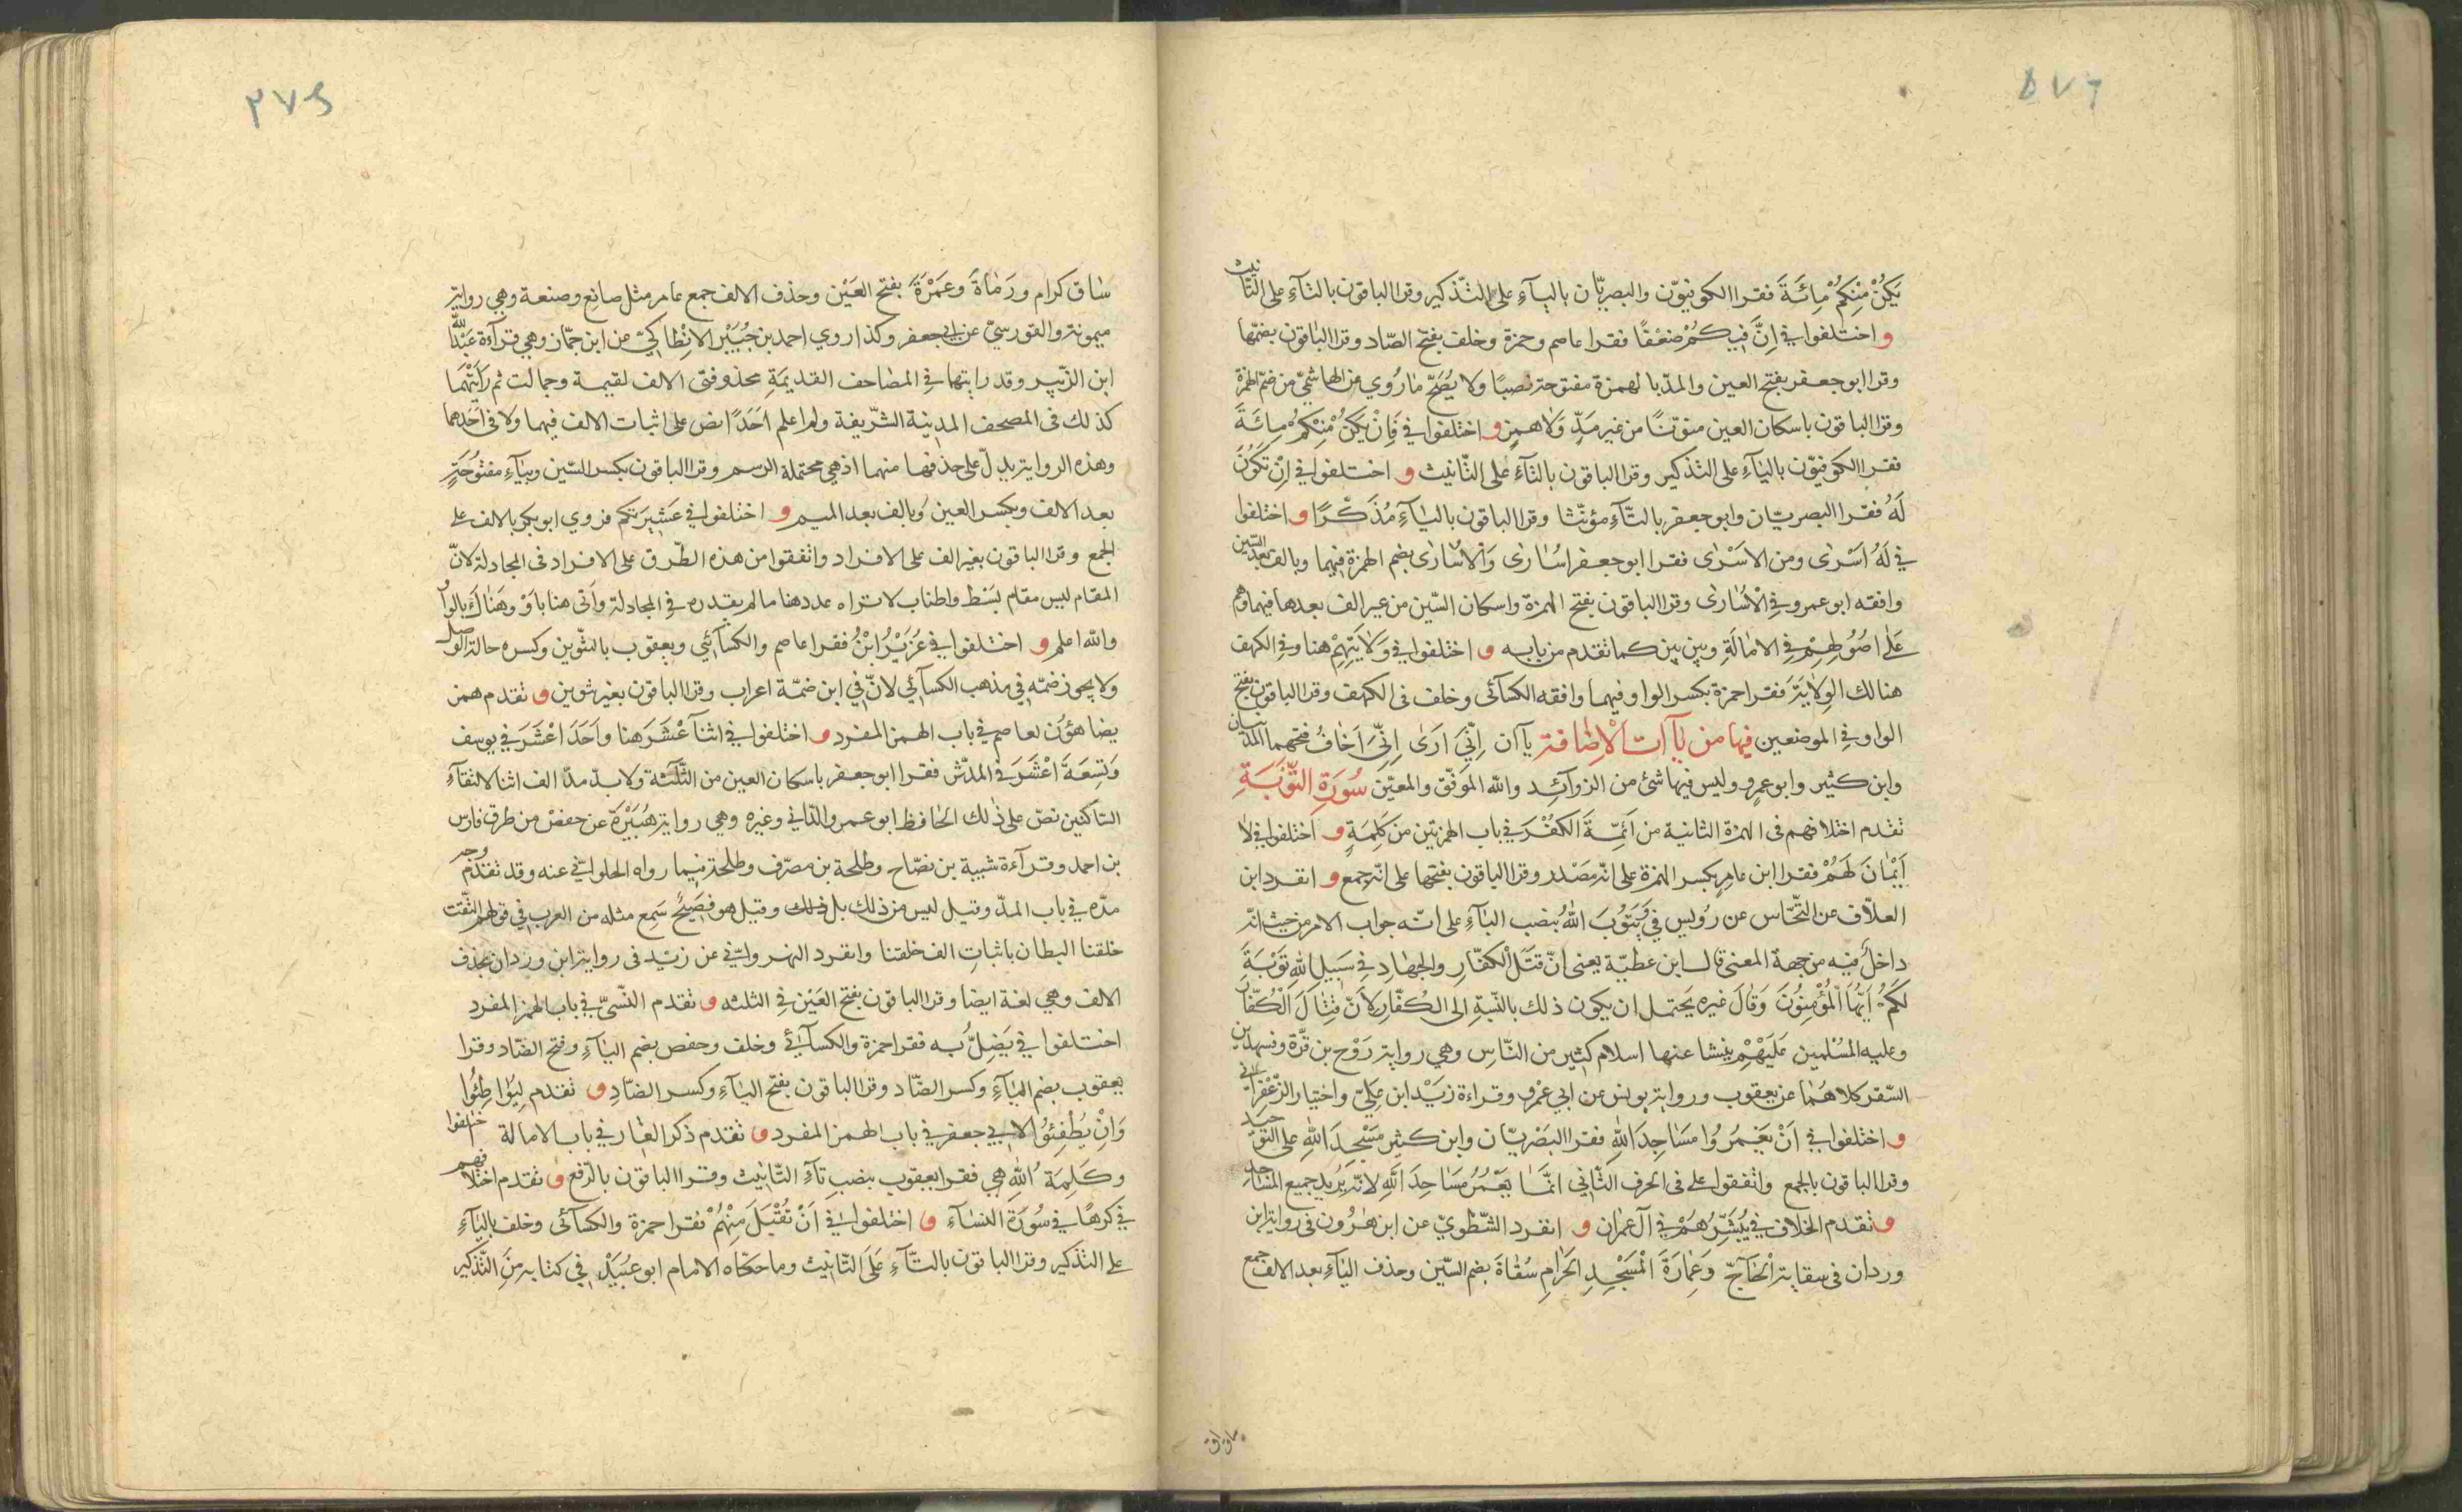 يَكُنْ مِنْكُمْ مِائَةَ فقرا الكوفيوّن والبصريّان بالياءِ على التّذكير وقرا الباقون بالتاءِ على التّانيث
و اختلفوا في اِنَّ فِيكُمْ ضَعْفًا فقرا عاصم وحمزة وخلف بفتح الضّاد وقرا الباقون بضمّها
وقرا ابو جعفر بفتح العين والمدّ با لهمزة مفتوحة نصبًا ولا يُصَحّ مارُوي من الهاشميّ من ضمّ الهمزة
وقرا الباقون باسكان العين منوّنًا من غير مَدٍّ وَلاهمزٍ و اختلفوا في فَاِنْ يَكُنْ مِنْكُمْ مِائَةَ
فقرا الكوفيّون بالياءِ على التذكير وقرا الباقون بالتاءَ على التّانيث و اختلفوا في اِنْ تَكُونَ
لَهُ فقرا البصريّان وابو جعفر بالتّآءِ مؤنّثا وقرا الباقون بالياءِ مُذَكّرًا و اختلفوا
في لَهُ اَسْرٰى ومن الاَسْرٰى فقرا ابو جعفر اسُارٰى وَالاُسَارٰى بضم الهمزة فيهما وبالف بعد السّين
وافقه ابو عمرو في الْاُسَارٰى وقرا الباقون بفتح الهمزة واسكان السّين من غير الف بعدها فيهما وهم
عَلٰى اصُولِهِمْ في الامٰالَةِ وبين بين كما تقدم من بابه و اختلفوا في وَلاَيَتِهِمْ هنا وفي الكهف
هنالك الوِلاٰيَةَ فقرا حمزة بكسر الواو فيهما وافقه الكسائى وخلف فى الكهف وقرا الباقون بفتح
الواو في الموضعين فيها من ياآت الْاِضافة يآ ان اِنّي اَرَى اِنّيَ اَخٰافُ فتحهما المدنيان
وابن كثير وابو عمرو وليس فيها شئ من الزوآئد والله الموَفّق والمعيّن سُورَةِ التَّوْبَةِ
تقدم اختلافهم فى الهمزة الثانية من اَئِمّةَ الكُفْرَ في باب الهمزتين من كَلِمَةٍ و اختلفوا في لاٰ
اَيْمٰانَ لَهُمْ فقرا ابن عامرٍ بكسر الهمزة على انّه مَصْدر وقرا الباقون بفتحها على انّه جمع و انفرد ابن
العلاّف عن النّخّاس عن رُوَيس في وَيَتُوْبَ اللهُ بنصب الباءِ على انّه جواب الامر من حيث انّه
داخلُ فيه من جهة المعنى قال ابن عطيّة يعنى انّ قتَلَ الْكفّارِ والجهٰادِ في سَبِيلِ اللهِ تَوْبَةَ
لَكُمْ اَيُّهَا الْمُؤْمِنُوُنَ وَقالَ غيره يَحتمل ان يكون ذلك بالنّسبةِ الى الكُفّارِ لاَنّ قِتَالَ الْكُفّارُ
وعلبه المسُلمين عَلَيْهِمْ ينشا عنها اسلام كثير من النّاسِ وهي رواية رَوْح بن قرّة وفهد بن
السّقر كلاهُمٰا عن يعقوب ورواية يونس عن ابي عَمْروِ وقراءة زَيْد ابن علِيّ واختيار الزّعْفَرٰاني
و اختلفوا في اَنْ يَعْمُرُوا مَسَاجِدَ اللهِ فقرا البصْريّان وابن كثير مَسْجِدَ اللهِ على التّوحيد
وقرا الباقون بالجمع واتّفقوا على فى الحرف الثّاني انَّمٰا يَعْمُرُ مَسَاجِدَ اللهِ لانّه يُرِيد جميع المسَاجد
و تقدم الخلاف في يُبَشِّرُهُمْ في آل عمران و انفرد الشّطْويّ عن ابن هٰرُون فى رواية ابن
وردان فى سقاية الْحٰآجّ وَعِمَارَةَ الْمَسْجِدِ الْحَرامِ سُقٰاةَ بضم السّين وحذف اليآءِ بعد الالف جمع
ساق كرام ورَمٰاةَ وعَمَرَةَ بفتح العَيْن وحذف الالف جمع عامر مثل صانع وصنعة وهي رواية
ميمونة والقورسيّ عن ابي جعفر وكذا روي احمد بن جُبَيْر الانْطاكيّ من ابن جمّاز وهي قرآءة عَبْد الله
ابن الزّبير وقد رايتها في المصٰاحف القديمَةِ محذوفتى الالف لقيمة وجمالت ثم رَاَيْتُهَما
كذلك فى المصحف المدينة الشّريفة ولم اعلم احَدًا نص على اثبات الالف فيهما ولا فى اَحَدهما
وهذه الرواية يدلّ على حذفها منهما اذهي محتملة الرسم وقرا الباقون بكسر السّين وبيآءِ مفتوُحَةٍ
بعد الالف وبكسر العين وبالف بعد الميم و اختلفوا في عَشِيرَتكم فروي ابو بكر بالالف على
الجمع وقرا الباقون بغير الف على الافراد واتفقوا من هذه الطّرق على الافراد فى المجادلة لانّ
المقام ليس مقام بَسْط واطناب لا تراه عددهنا مالم يعدده في المجادلة وَاَتى هنا باَوْ وهَنٰاك بالواو
والله اعلم و اختلفوا في عُزَيْرُ ابْنُ فقرا عاصم والكسآئي ويعقوب بالتّنوين وكسره حالة الوصل
ولا يجوز ضمّه في مذهب الكسآئي لانّ في ابن ضمّة اعراب وقرا الباقون بغير تنوين و تقدم همز
يضاهؤُن لعاصم في باب الهمز المفرد و اختلفوا في اثنآ عَشَرَ هنا واَحَدَ اعْشَرَ في يوسف
وَتِسعَةَ اعْشَرَ في المدّثّر فقرا ابو جعفر باسكان العين من الثّلٰثة ولا بدّ من مدّ الف اثنا لالتقآءِ
السّاكنين نصّ على ذٰلك الحٰافظ ابو عمرو الدّاني وغيره وهي رواية هُبَيْرَةَ عن حفصْ من طرق فارس
بن احمد وقرآءة شيبة بن نصّاح وطلحة بن مصرّف وطلحة فيما رواه الحلوانيّ عنه وقد تقدّم وجه
مدّه في باب المدّ وقيل ليس من ذلك بل ذلك وقيل هو فصَيحُ سَمِع مثله من العرب في قولهم التقت
حلقتا البطان باثباتِ الف حلقتا وانفرد النهروانيّ عن زيْد فى رواية ابن وردان بحذف
الالف وهي لغة ايضا وقرا الباقون بفتح العَيْن في الثلثه و تقدم النّسيّ في باب الهمز المفرد
اختلفوا في يَضِلُّ به فقرا حمزة والكسآئي وخلف وحفص بضم اليآءِ وفتح الضّاد وقرا
يعقوب بضم اليآءِ وكسر الضّاد وقرا الباقون بفتح اليآءِ وكسر الضّادِ و تقدم لِيُوٰاطِئُوا
وَاِنْ يُطْفِئُوُا لابي جعفر في باب الهمز المفرد و تقدم ذكر الغٰار في باب الامالة اختلفوا
وكَلِمَةُ اللهِ هِي فقرا يعقوب بنصبِ تآءِ التّانِيث وقرا الباقون بالرّفع و تقدم اختلافهم
في كرهًا في سُورَةِ النسٰآءِ و اختلفوا في اَنْ تُقْبَلَ مِنْهُمْ فقرا حمزة والكسآئى وخلف باليآءِ
على التذكير وقرا الباقون بالتّآءِ عَلَى التّانِيث وما حكاه الامام ابو عُبَيْد في كتابه مِنَ التّذكير